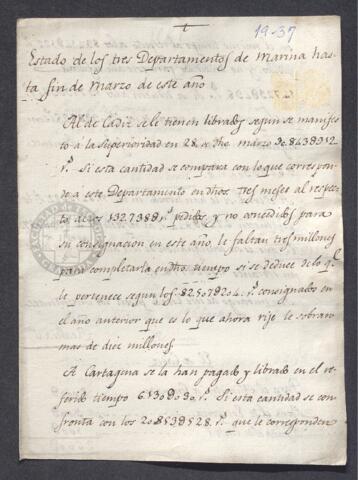 +
19-37
Estado de los tres Departamentos de Marina has
ta fin de Marzo de este año
Al de Cadiz se le tienen librados segun se manifes
to a la superioridad en 28 de dho marzo
rˢ. Si esta cantidad se compara con lo que correspon
de a este Departamento en dhos. tres meses al respec
to de los pedidos y no concedidos para
su consignacion en este año, le faltan tres millones
para completarla en dho. tiempo si se deduce de lo q.ᵉ
le pertenece segun los 82.507@204 rˢ. consignados en
el año anterior que es lo que ahora rije le sobraron
mas de diez millones
A Cartagena se la han pagado y librado en el re
ferido tiempo rˢ. Si esta cantidad se con
fronta con los 20.853@528 rˢ. que le corresponden